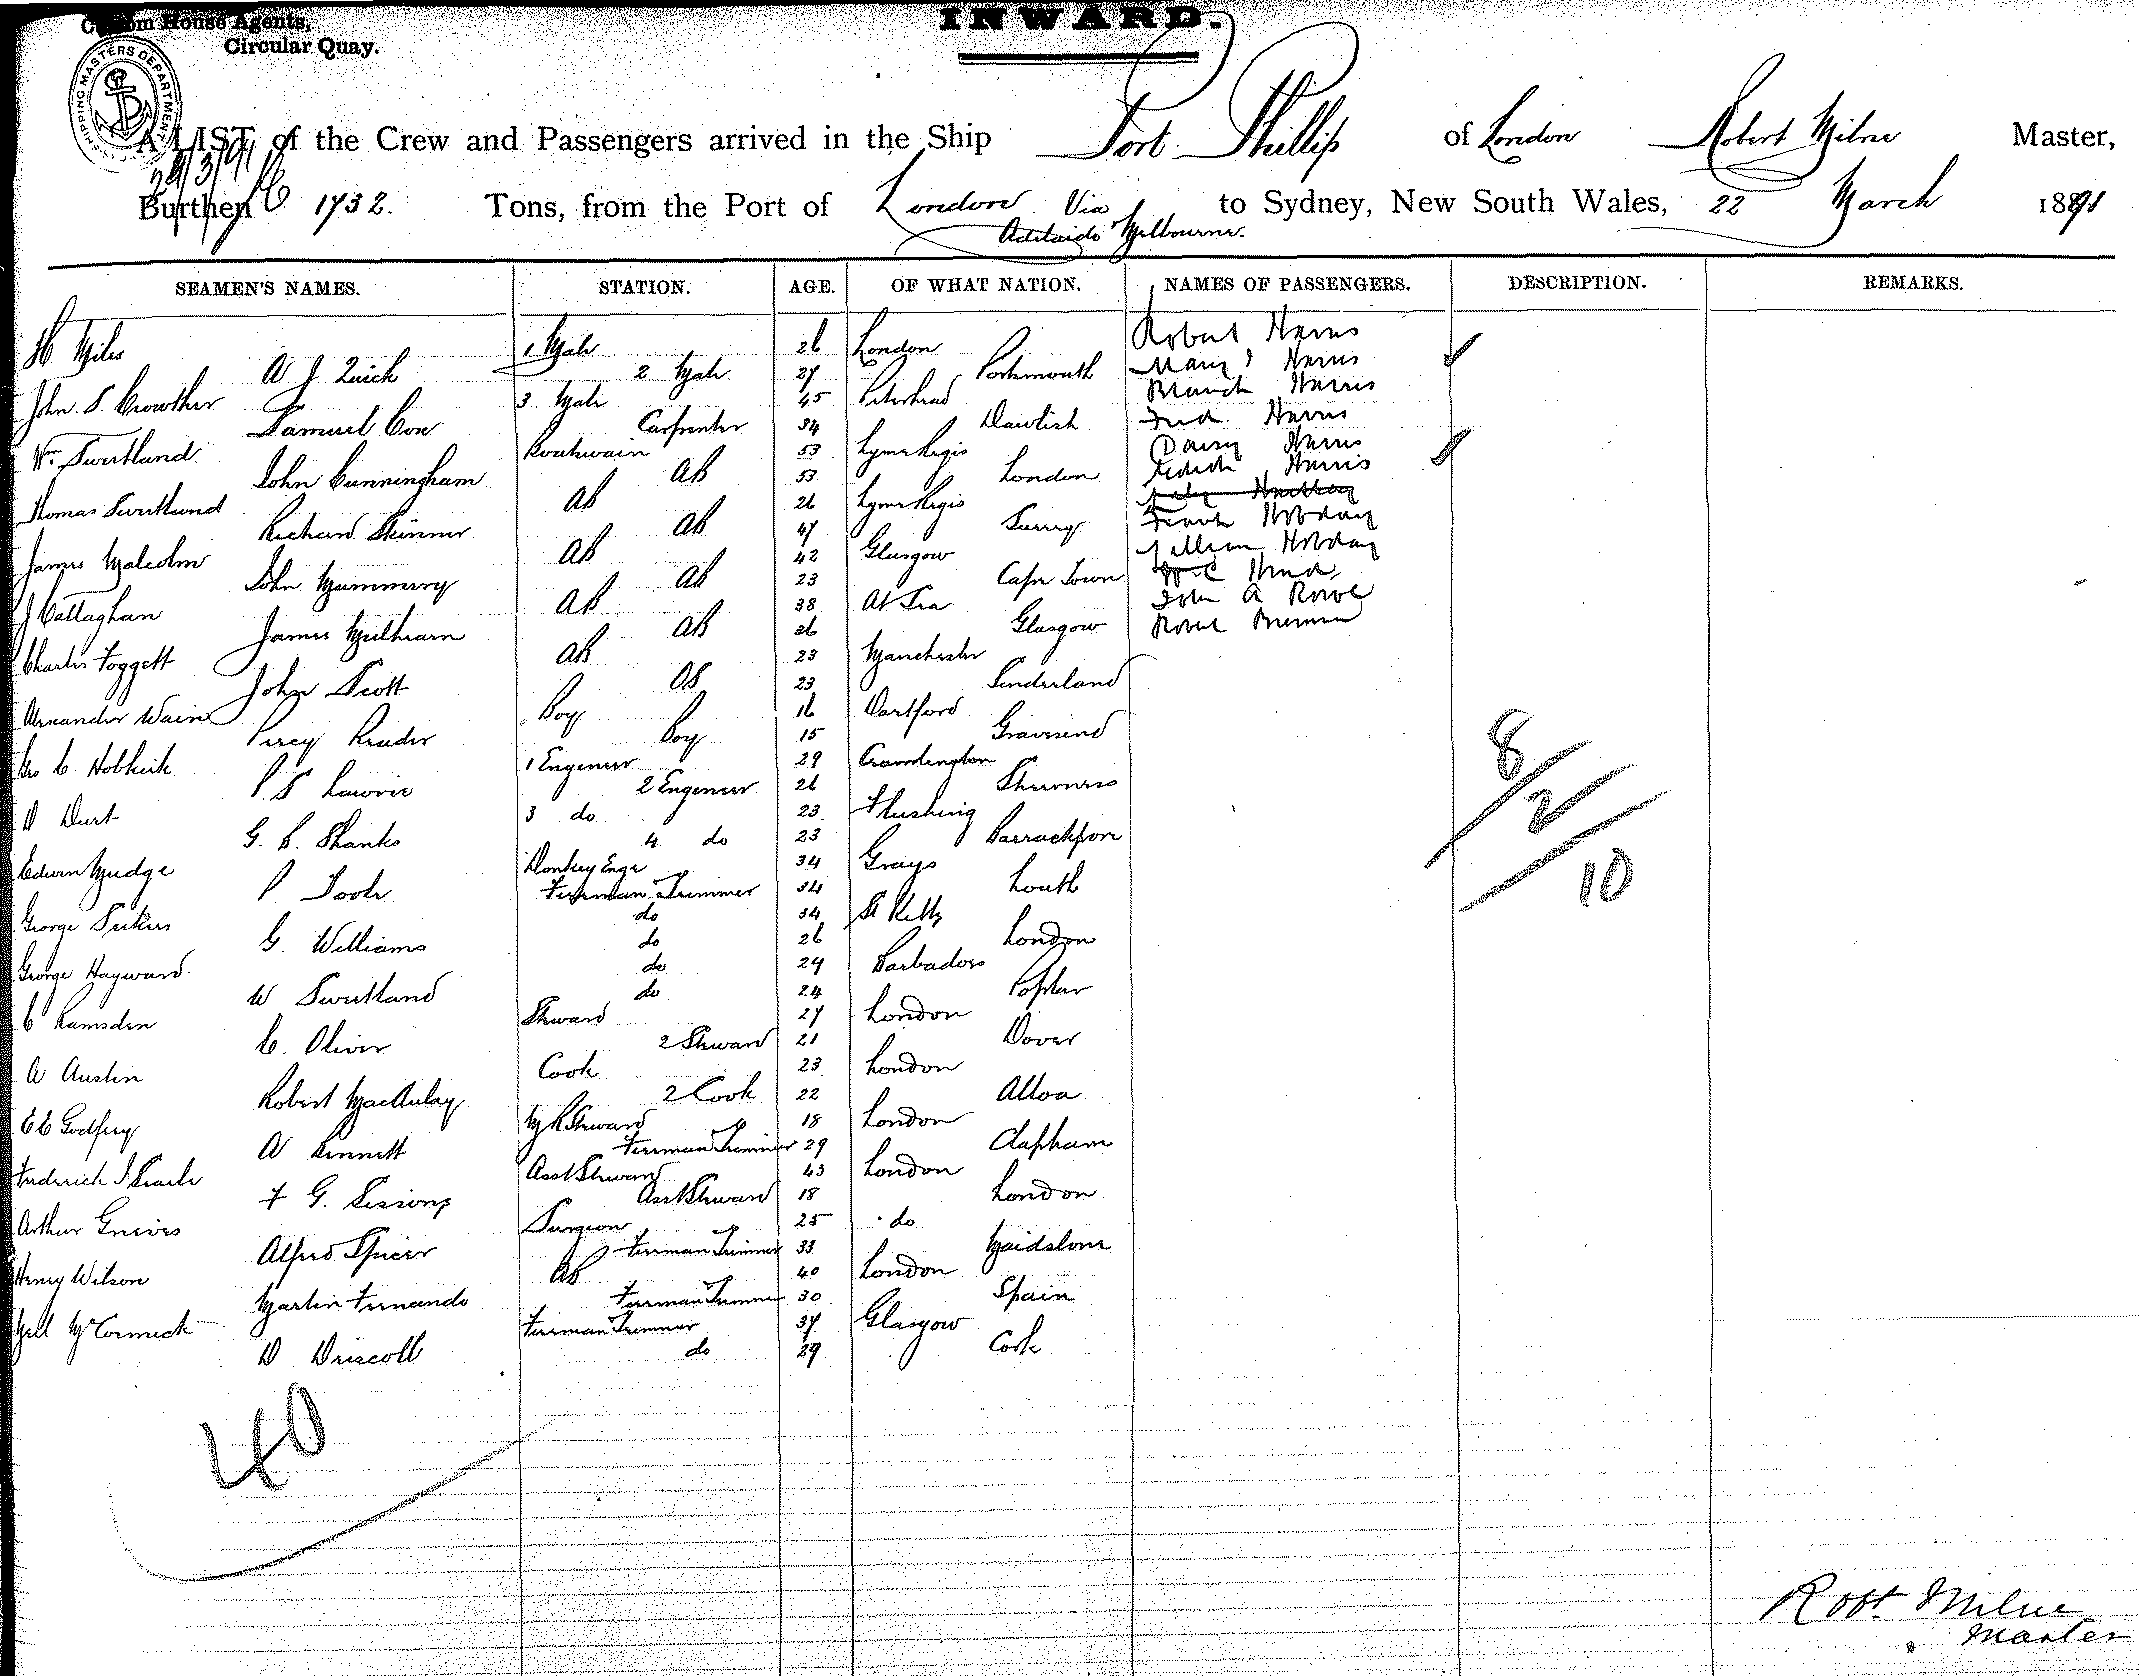 Custom House Agents,
Circular Quay.
INWARD.
SHIPPING MASTERS DEPARTMENT
A LIST of the Crew and Passengers arrived in the Ship Port Phillip of London Robert Milne Master,
24/3/91
Burthen 1732. Tons, from the Port of London Via Adelaide Melbourne. to Sydney, New South Wales, 22 March 1891
SEAMEN'S NAMES. STATION. AGE. OF WHAT NATION. NAMES OF PASSENGERS. DESCRIPTION. REMARKS.
Miles 1 Mate 26 London Robert Harris
W J Quick 2 Mate 27 Portsmouth Mary Harris
John S. Crowther 3 Mate 45 Peterhead Blanch Harris
Samuel Cox Carpenter 34 Dawlish Fred Harris
Wm Sweetland Boatswain 53 Lyme Regis Daisy Harris
John Cunningham AB 53 London Harris
Thomas Sweetland AB 26 Lyme Regis
Richard Skinner AB 47 Surrey Frank Hobday
James Malcolm AB 42 Glasgow Hobday
John Mummery AB 23 Cape Town
J Callaghan AB 38 At Sea John A Rowe
James Mulhearn AB 26 Glasgow Robert
Charles Foggett AB 23 Manchester
John Scott OS 23 Sunderland
Alexander Wain Boy 16 Dartford
Percy Reader Boy 15 Gravesend
Geo C. 1 Engeneer 29 Cramlington
P. S Lawrie 2 Engeneer 26 Sheerness
D Durt 3 do 23 Flushing
G. B. Shanks 4 do 23 Barrackpore
Edwin Mudge Donkey Engr 34 Grays
P Toole Fireman Trimmer 34 Louth
George do 34 St Kitts
G. Williams do 26 London
George Hayward do 24 Barbados
W Sweetland do 24 Poplar
C Ramsden Steward 27 London
C. Oliver 2 Steward 21 Dover
A Austin Cook 23 London
Robert MacAulay 2 Cook 22 Alloa
E C Godfrey M R Steward 18 London
A Bennett Fireman Trimmer 29 Clapham
Frederick J Searle Asst Steward 43 London
F G. Sessions Asst Steward 18 London
Arthur Greives Surgeon 25 do
Alfred Spicer Fireman Trimmer 33 Maidstone
Henry Wilson AB 40 London
Martin Fernando Fireman Trimmer 30 Spain
Neil McCormick Fireman Trimmer 37 Glasgow
D Driscoll do 29 Cork
8/2/10
40
Robt Milne
Master